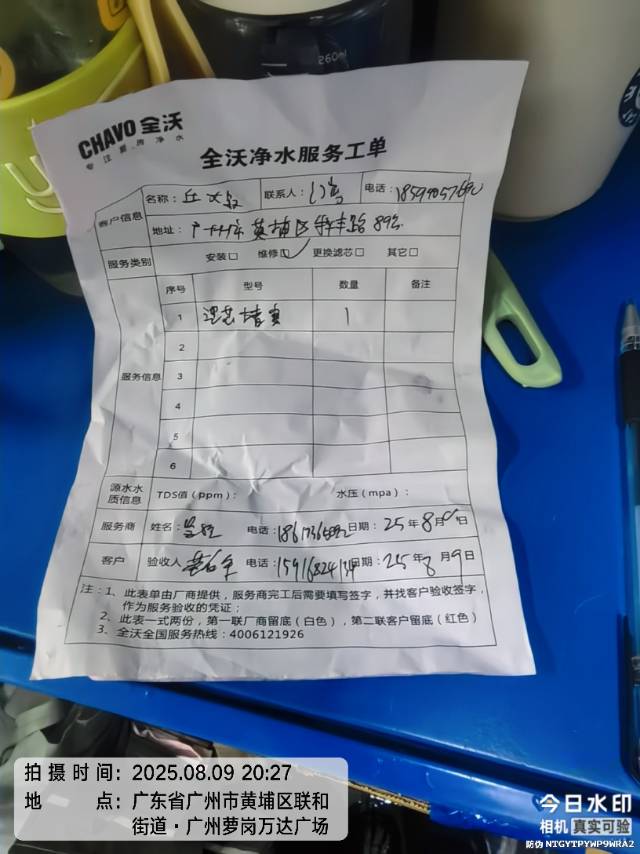 260ml
CHAVO 全沃
专注厨房净水
全沃净水服务工单
客户信息
名称:
联系人:
电话:
地址: 广州市 黄埔区
服务类别 安装□ 维修□✓ 更换滤芯□ 其它□
服务信息
序号 型号 数量 备注
1 滤芯堵塞 1
2
3
4
5
6
源水水质信息 TDS值(ppm): 水压(mpa):
服务商 姓名: 电话: 日期: 25年8月 日
客户 验收人 电话: 日期: 25年8月9日
注:1、此表单由厂商提供,服务商完工后需要填写签字,并找客户验收签字,
作为服务验收的凭证;
2、此表一式两份,第一联厂商留底(白色),第二联客户留底(红色)
3、全沃全国服务热线:4006121926
拍摄时间: 2025.08.09 20:27
地点: 广东省广州市黄埔区联和
街道·广州萝岗万达广场
今日水印
相机 真实可验
防伪 NTGYTPYWP9WRA2